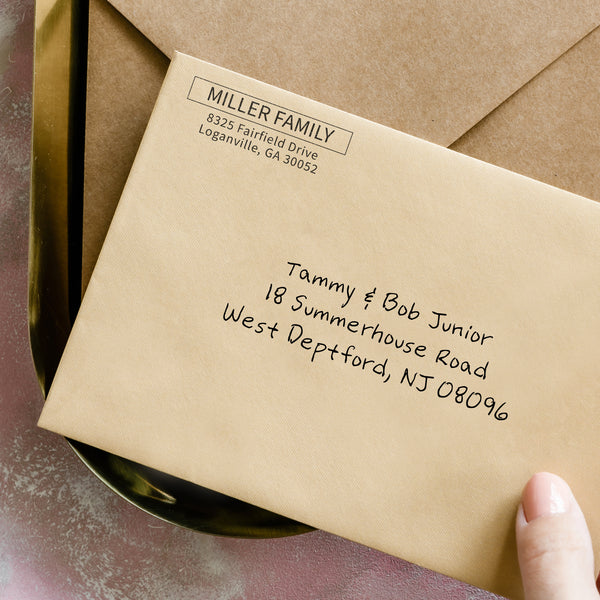 MILLER FAMILY
8325 Fairfield Drive
Loganville, GA 30052
Tammy & Bob Junior
18 Summerhouse Road
West Deptford, NJ 08096